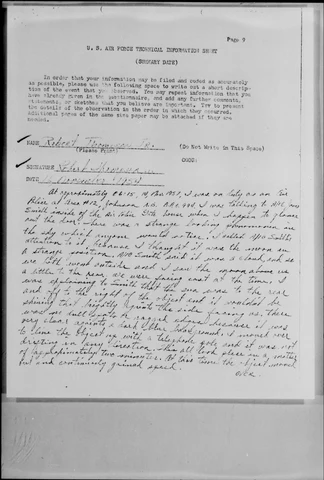 Page 9
U. S. AIR FORCE TECHNICAL INFORMATION SHEET
(SUMMARY DATA)
In order that your information may be filed and coded as accurately
as possible, please use the following space to write out a short descrip-
tion of the event that you observed. You may repeat information that you
have already given in the questionnaire, and add any further comments,
statements, or sketches that you believe are important. Try to present
the details of the observation in the order in which they occurred.
Additional pages of the same size paper may be attached if they are
needed.
NAME Robert Thompson
(Please Print)
(Do Not Write In This Space)
CODE:
SIGNATURE Robert Thompson
DATE
At approximately I was on duty as an Air
Police at Johnson I was talking to
Smith inside of the when I happen to glance
out the door. there was a strange looking phenomenon in
the sky which anyone would notice. I called Smith's
attention to it, because I thought it was the moon in
a strange position. Smith said it was a cloud, and so
we both went outside and I saw the moon above us
a little to the rear, we were facing east at the time. I
was explaining to Smith that the sun was to the rear
and off to the right of the object and it wouldn't be
shining that bright against the side facing us, there
was no
very clear against a dark blue background, it moved over
to line the object up with a telephone pole, and it was not
drifting in any direction. this all took place in a matter
of approximately two minutes. At this time the object moved
but and continually gained speed.
over